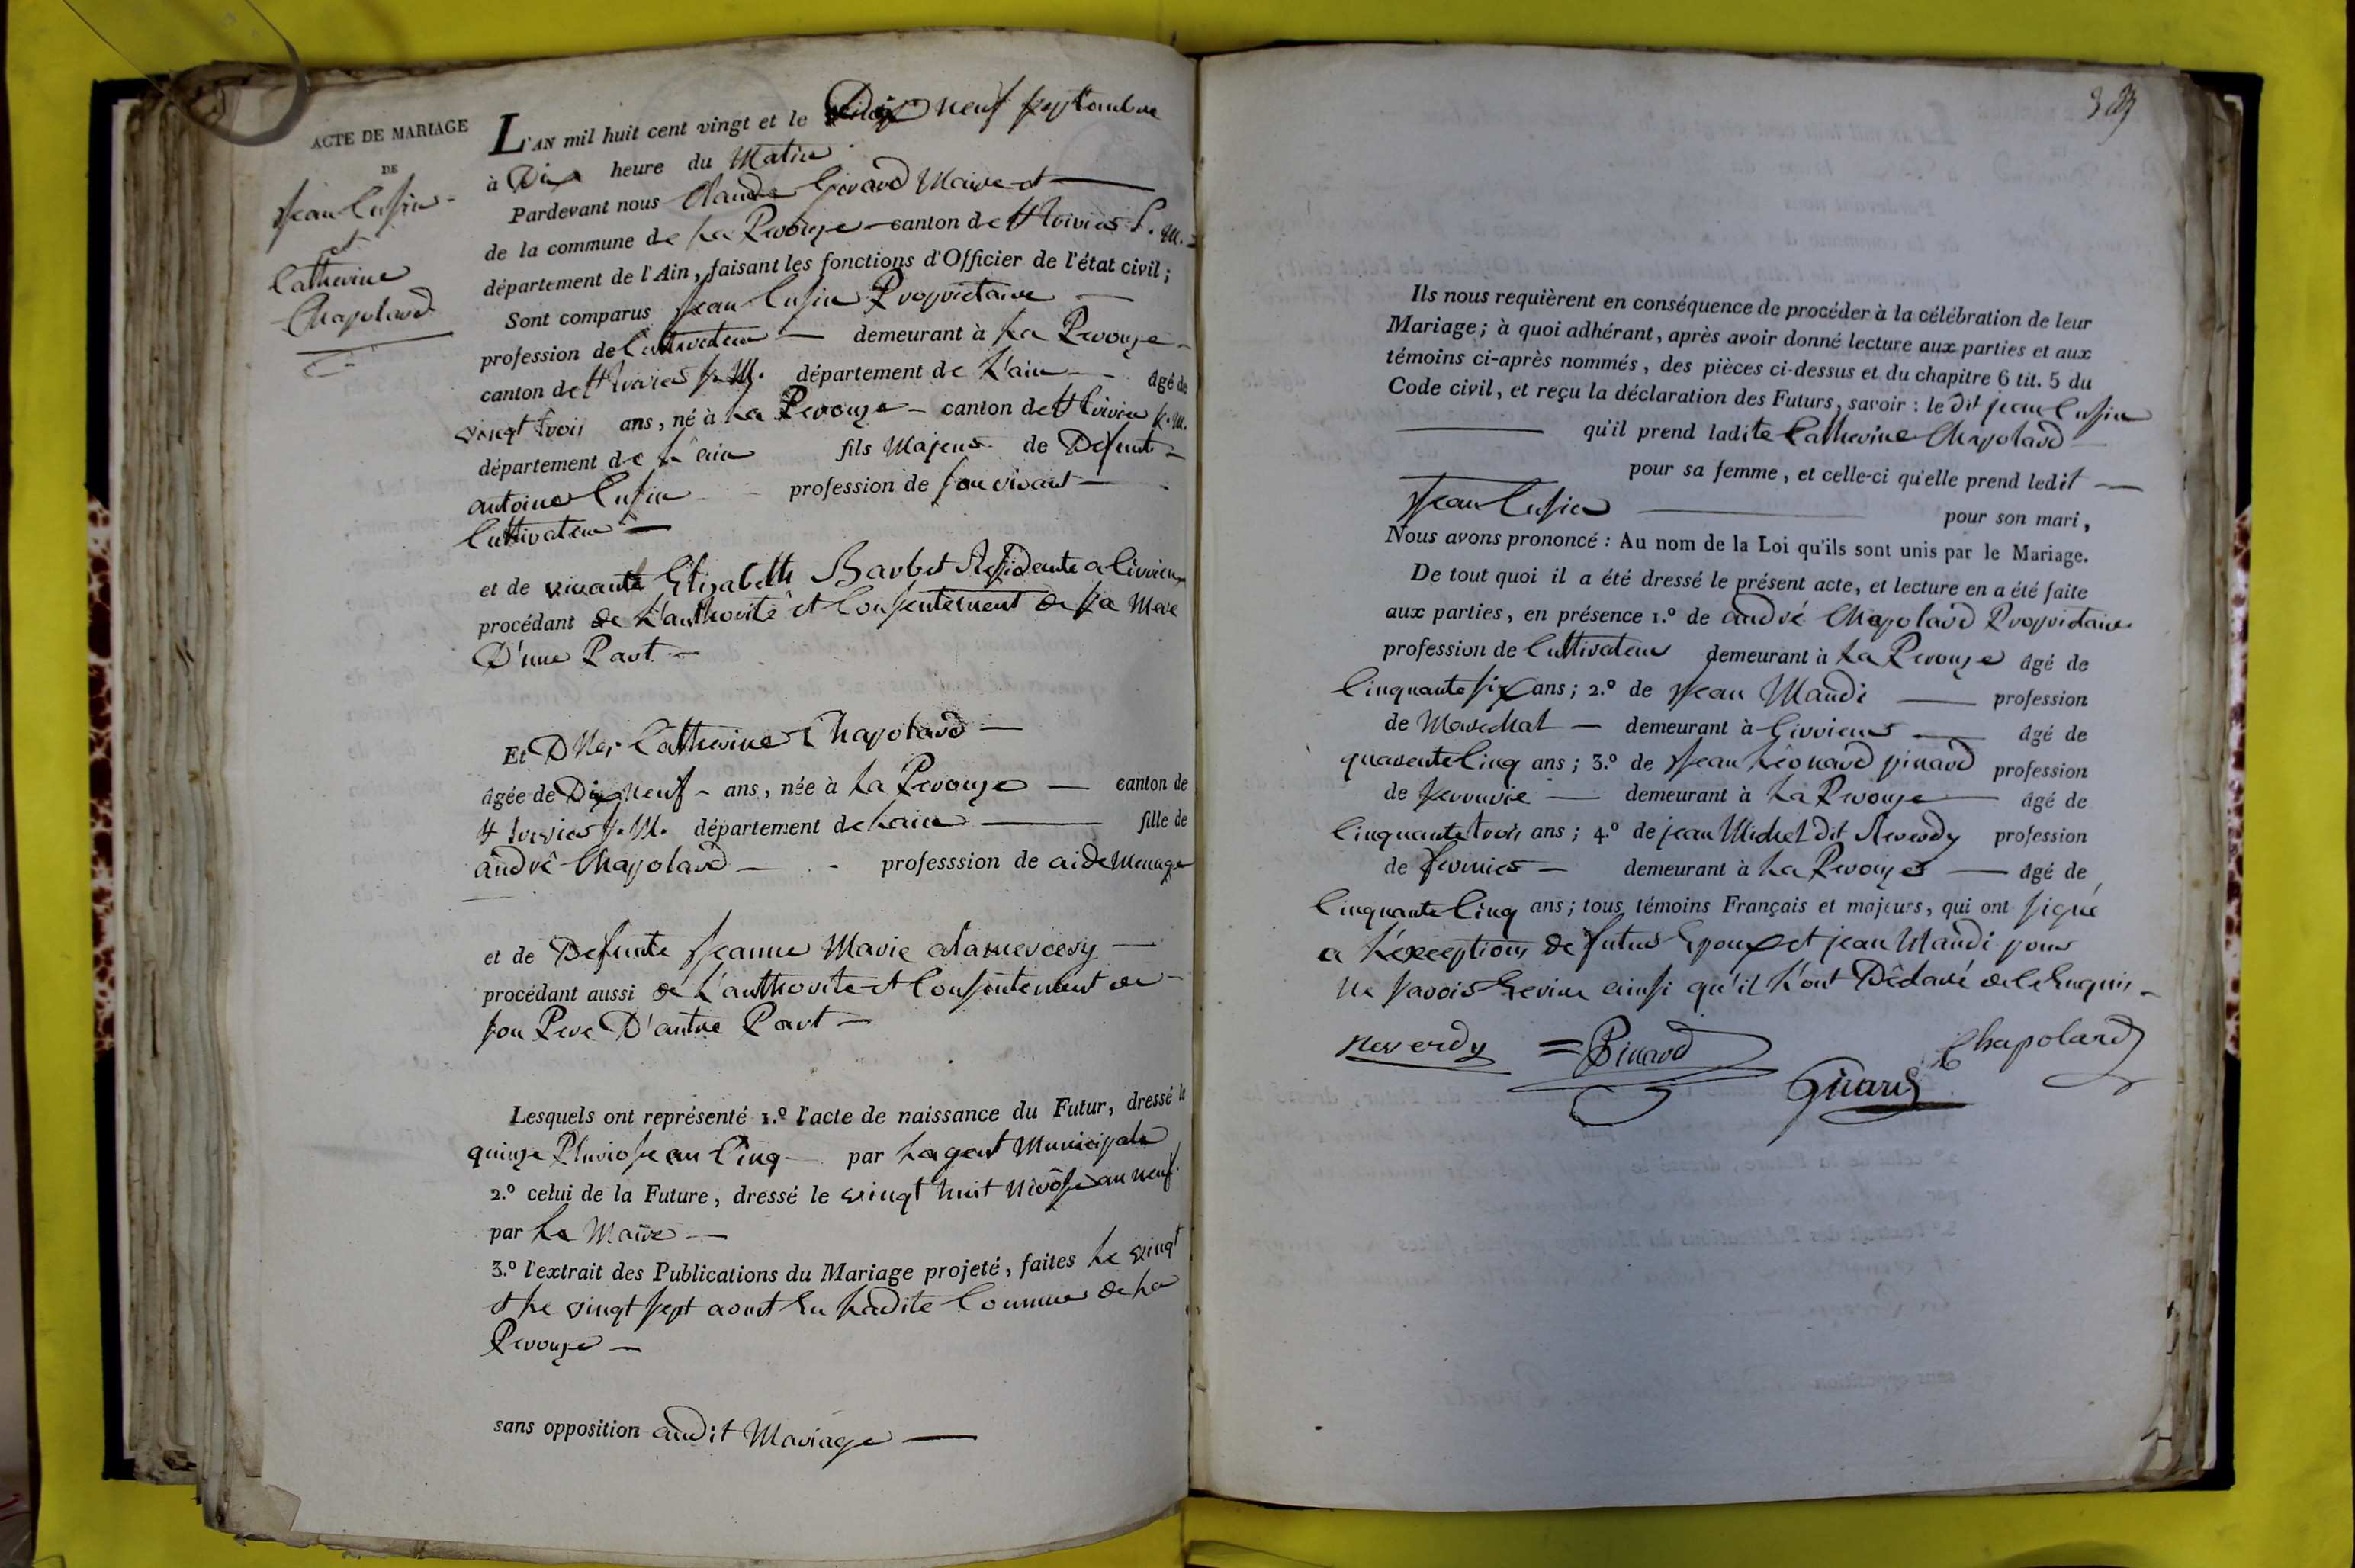 ACTE DE MARIAGE
DE
Jean Cusin
et
Catherine
Chapolard
L'AN mil huit cent vingt et le Dix neuf septembre
à Dix heure du Matin
Pardevant nous Claude Girard Maire et
de la commune de La Perouze canton de St trivier S. M.
département de l'Ain, faisant les fonctions d'Officier de l'état civil;
Sont comparus Jean Cusin Proprietaire
profession de Cultivateur demeurant à La Perouze
canton de St trivier s. M. département de L'ain âgé de
vingt trois ans, né à La Perouze canton de St trivier s. M.
département de L'ain fils Majeur de Defunt
antoine Cusin profession de son vivant
Cultivateur
et de vivante Elizabeth Barbet Residente a Civrieux
procédant de L'authorité et Consentement de sa Mere
D'une Part
Et Dlle Catherine Chapolard
âgée de Dix Neuf ans, née à La Perouze canton de
St trivier s. M. département de Lain fille de
andré Chapolard professsion de aide Menage
et de Defunte Jeanne Marie alamercery
procédant aussi de L'authorité et Consentement de
son Pere D'autre Part
Lesquels ont représenté 1.º l'acte de naissance du Futur, dressé le
quinze Pluviose an Cinq par Lagent Municipale
2.º celui de la Future, dressé le vingt huit Nivôse an neuf
par Le Maire
3.º l'extrait des Publications du Mariage projeté, faites Le vingt
et Le vingt sept aoust En Ladite Commune de La
Perouze
sans opposition audit Mariage
Ils nous requièrent en conséquence de procéder à la célébration de leur
Mariage; à quoi adhérant, après avoir donné lecture aux parties et aux
témoins ci-après nommés, des pièces ci-dessus et du chapitre 6 tit. 5 du
Code civil, et reçu la déclaration des Futurs, savoir : le dit jean Cusin
qu'il prend ladite Catherine Chapolard
pour sa femme, et celle-ci qu'elle prend ledit
Jean Cusin pour son mari,
Nous avons prononcé : Au nom de la Loi qu'ils sont unis par le Mariage.
De tout quoi il a été dressé le présent acte, et lecture en a été faite
aux parties, en présence 1.º de andré Chapolard Proprietaire
profession de Cultivateur demeurant à La Perouze âgé de
Cinquante six ans; 2.º de Jean Mandi profession
de Marechal demeurant à Civrieux âgé de
quarente Cinq ans; 3.º de Jean Léonard pinard profession
de serrurié demeurant à La Perouze âgé de
Cinquante trois ans; 4.º de jean Michel dit Neverdy profession
de fermier demeurant à La Perouze âgé de
Cinquante Cinq ans; tous témoins Français et majeurs, qui ont signé
a L'exeception de futur Epoux et jean Mandi pour
Ne savoir Ecrire ainsi qu'il L'ont Déclaré de Ce Enquis
neverdy Pinard Chapolard
Girard